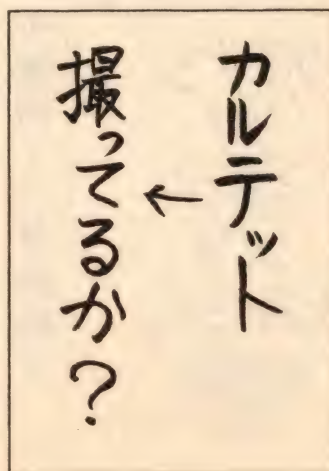 カルテット
←
撮ってるか？